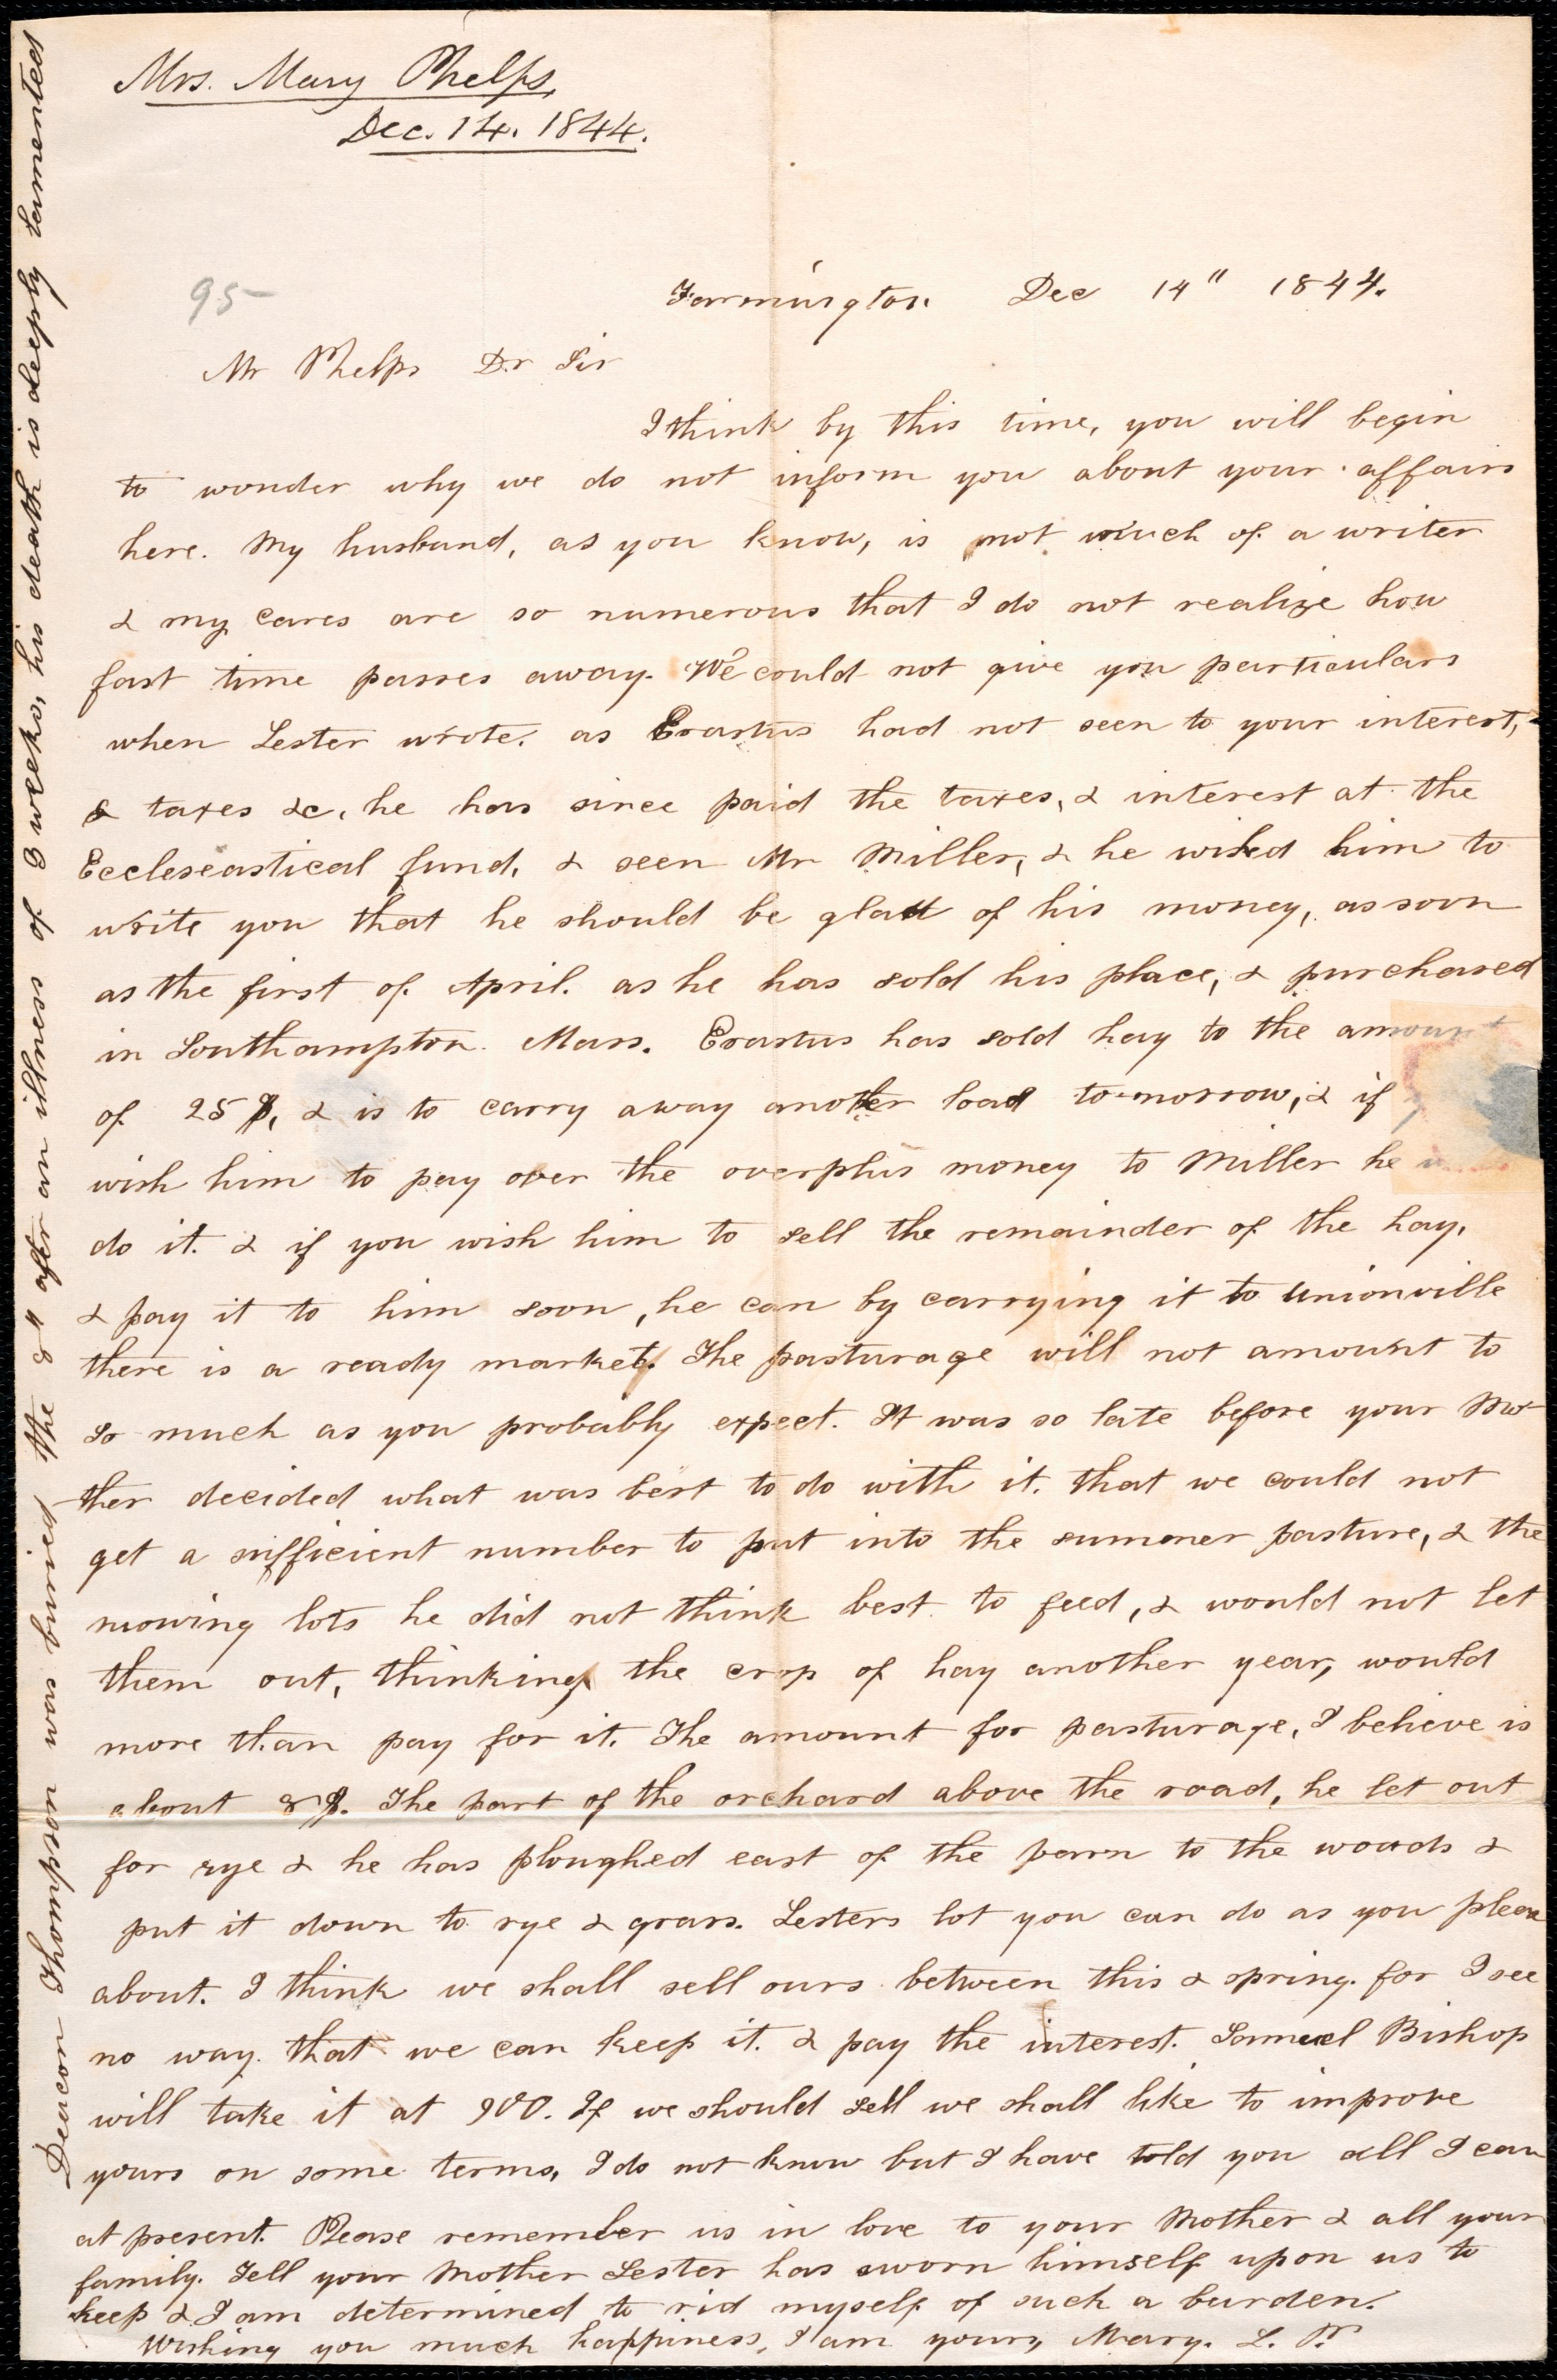 Mrs. Mary Phelps,
Dec. 14. 1844.
95
Farmington Dec 14" 1844.
Mr Phelps Dr Sir
I think by this time, you will begin
to wonder why we do not inform you about your affairs
here. My husband, as you know, is not much of a writer
& my cares are so numerous that I do not realize how
fast time passes away. We could not give you particulars
when Lester wrote. as Erastus had not seen to your interest,
& taxes &c, he has since paid the taxes, & interest at the
Eccleseastical fund, & seen Mr Miller, & he wished him to
write you that he should be glad of his money, as soon
as the first of April. as he has sold his place, & purchased
in Southampton. Mass. Erastus has sold hay to the amount
of 25 $, & is to carry away another load to-morrow, & if
wish him to pay over the overplus money to Miller he
do it. & if you wish him to sell the remainder of the hay,
& pay it to him soon, he can by carrying it to Unionville
there is a ready market. The pasturage will not amount to
so much as you probably expect. It was so late before your Mo-
ther decided what was best to do with it. that we could not
get a sufficient number to put into the summer pasture, & the
mowing lots he did not think best to feed, & would not let
them out, thinking the crop of hay another year, would
more than pay for it. The amount for pasturage, I believe is
about 8$. The part of the orchard above the road, he let out
for rye & he has ploughed east of the barn to the woods &
put it down to rye & grass. Lesters lot you can do as you please
about. I think we shall sell ours between this & spring. for I see
no way that we can keep it. & pay the interest. Samuel Bishop
will take it at 900. If we should sell we shall like to improve
yours on some terms, I do not know but I have told you all I can
at present. Please remember us in love to your Mother & all your
family. Tell your Mother Lester has sworn himself upon us to
keep & I am determined to rid myself of such a burden.
Wishing you much happiness, I am yours, Mary. L. P.
Deacon Thompson was buried the 8" after an illness of 3 weeks, his death is deeply lamented